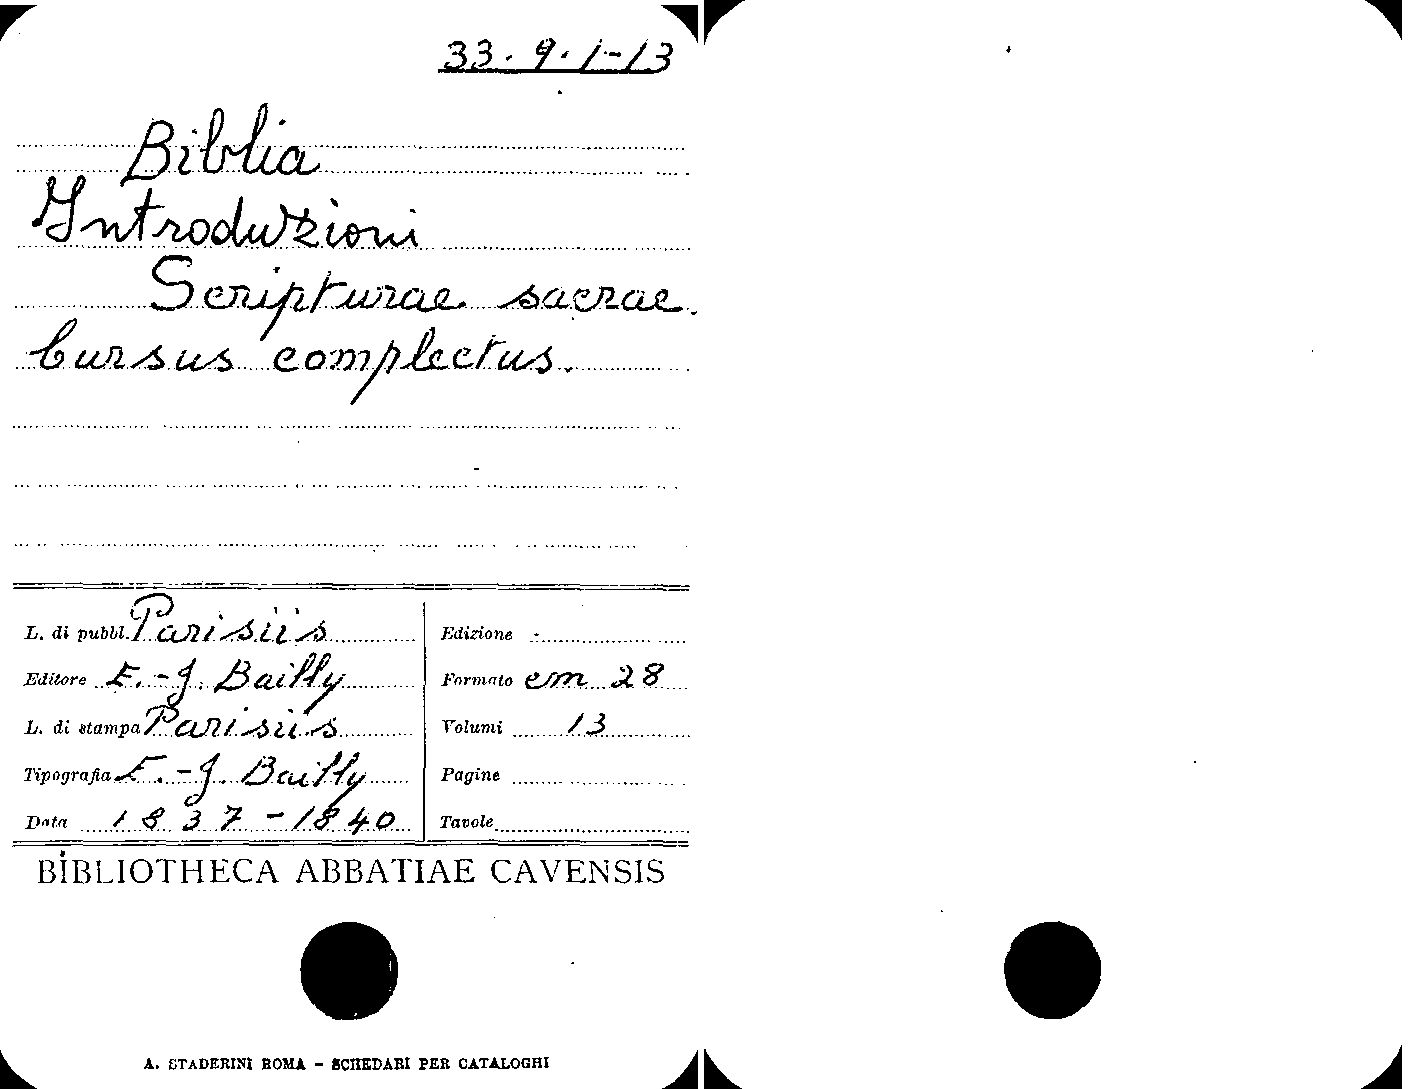 33.9.1-13
Biblia
Introduzioni
Scripturae sacrae
Cursus complectus.
L. di pubbl. Parisiis
Editore E.-J. Bailly
L. di stampa Parisiis
Tipografia E.-J. Bailly
Data 1837-1840
Edizione -
Formato cm 28
Volumi 13
Pagine
Tavole
BIBLIOTHECA ABBATIAE CAVENSIS
A. STADERINI ROMA - SCHEDARI PER CATALOGHI